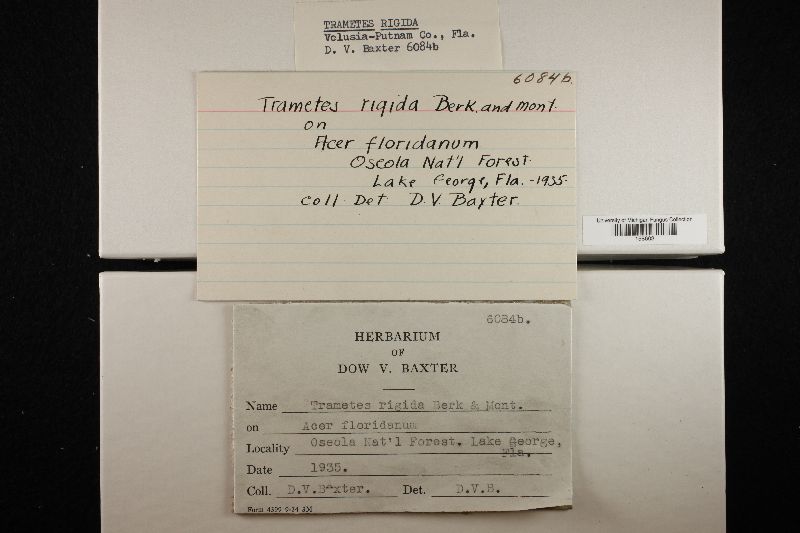 TRAMETES RIGIDA
Volusia-Putnam Co., Fla.
D. V. Baxter 6084b
6084b.
Trametes rigida Berk. and Mont.
on
Acer floridanum
Oseola Nat'l Forest.
Lake George, Fla. -1935.
Coll. Det. D.V. Baxter.
University of Michigan Fungus Collection
6084b.
HERBARIUM
OF
DOW V. BAXTER
Name Trametes rigida Berk & Mont.
on Acer floridanum
Locality Oseola Nat'l Forest. Lake George,
Fla.
Date 1935.
Coll. D.V.Baxter. Det. D.V.B.
Form 4399 9-34